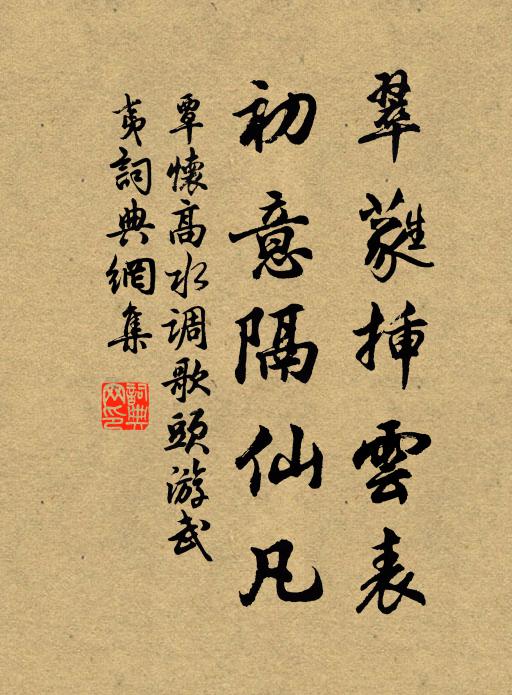 翠蕤挿雲表
初意隔仙凡
覃懷高水调歌頭游武
夷詞典網集
詞典网印